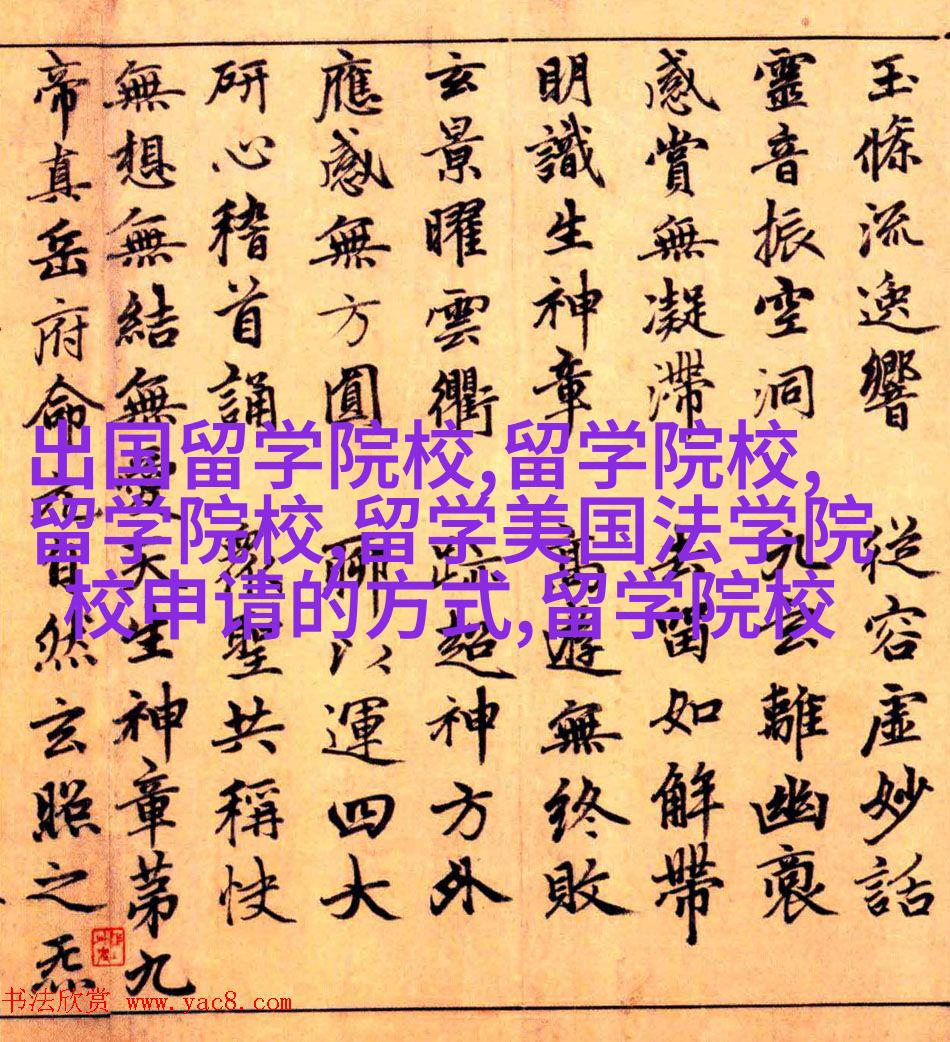 玉條流逸響 從容虛妙話
靈音振空洞 九玄離幽裹
感賞無凝滯 去留如解帶
明識生神章 高遊無終敗
玄景曜雲衢 跡超神方外
應感無方圓 聊以運四大
研心稽首誦 聖共稱快
無想無結無愛天生神章第九
帝真岳府命元自然玄照之炁
出国留学院校,留学院校,
留学院校,留学美国法学院
校申请的方式,留学院校
书法欣赏 www.yac8.com